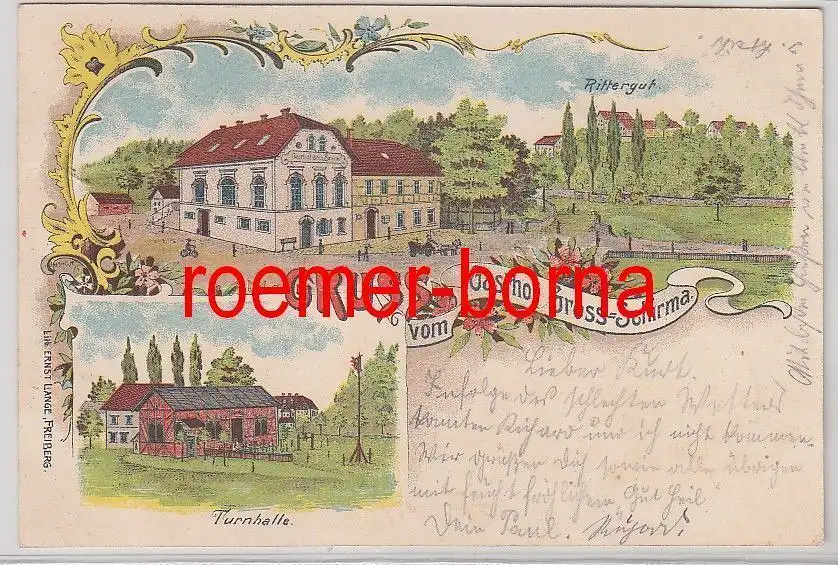 Rittergut.
roemer-borna
GRUSS
vom Gasthof Gross-Schirma.
LITH. ERNST LANGE, FREIBERG.
Turnhalle.
Lieber Kurt.
Infolge des schlechten Wetters
konnten Richard und ich nicht kommen.
Wir grüßen Dich sowie alle übrigen
mit feucht fröhlichem „Gut Heil"
Dein Paul. Richard.